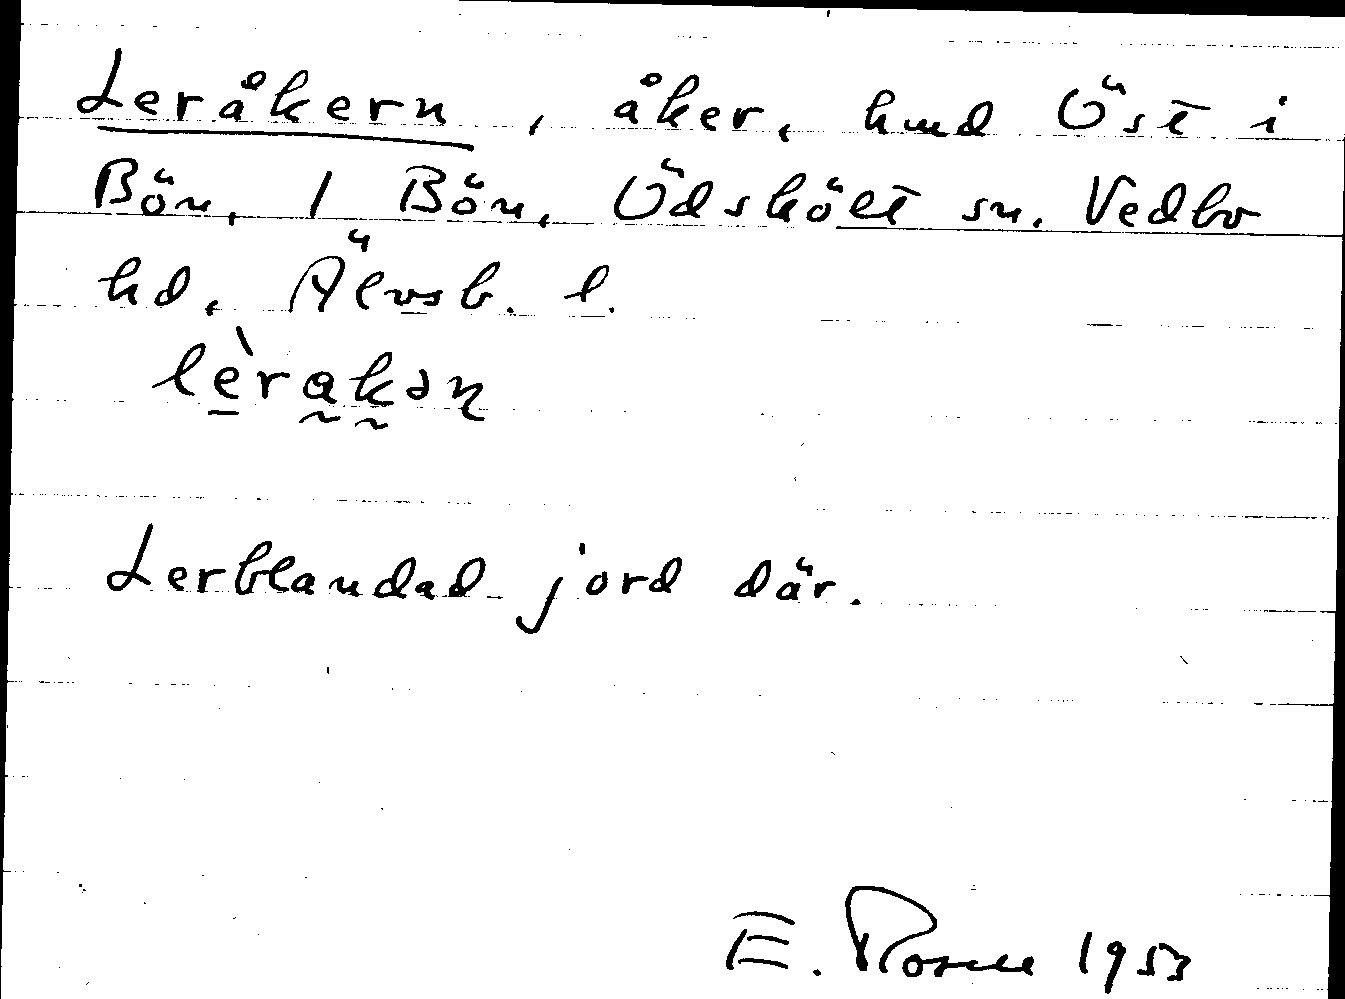 Leråkern, åker, hmd Öst i
Bön, 1 Bön, Ödskölt sn. Vedbo
hd, Älvsb. l.
lèrakən
Lerblandad jord där.
E. Rosell 1953